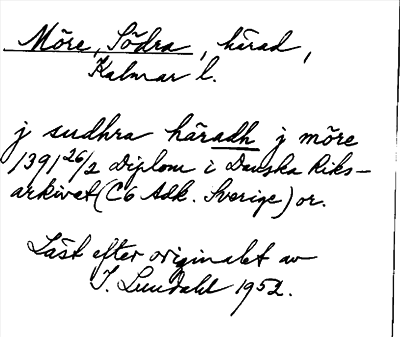 Möre, Södra, härad,
Kalmar l.
j sudhra häradh j möre
1391 26/2 Diplom i Danska Riks-
arkivet (C6 Adk. Sverige) or.
Läst efter originalet av
I. Lundahl 1952.